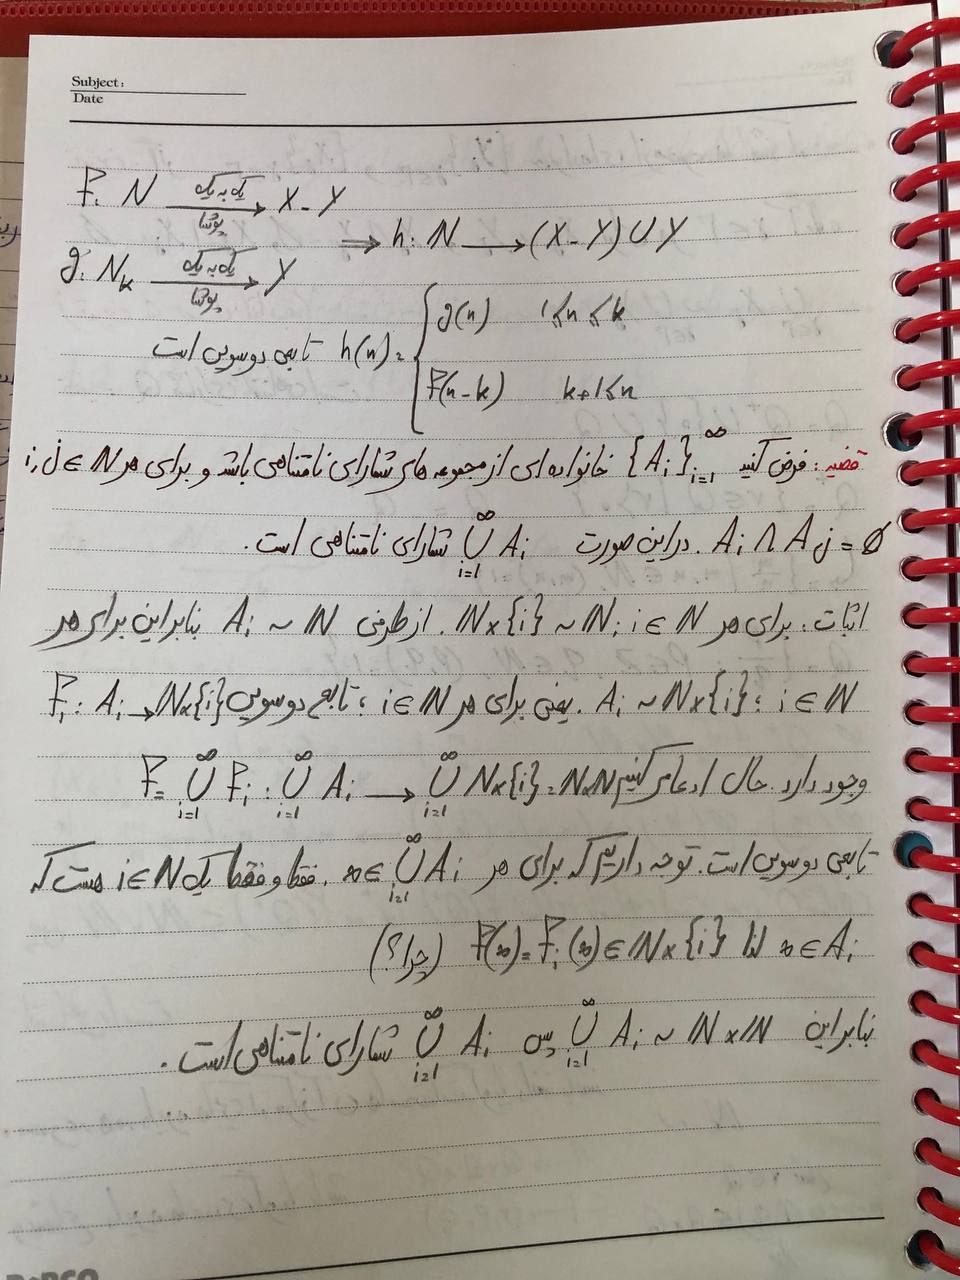 Subject:
Date
f: N یک به یک پوشا → X - Y
⇒ h: N → (X - Y) ∪ Y
g: N_k یک به یک پوشا → Y
h(n) = { g(n) 1 ≤ n ≤ k
f(n-k) k+1 ≤ n تابعی دوسویی است
قضیه: فرض کنید {A_i}_{i=1}^∞ خانواده ای از مجموعه های شمارای نامتناهی باشد و برای هر i,j ∈ N
A_i ∩ A_j = ∅. در این صورت ⋃_{i=1}^∞ A_i شمارای نامتناهی است.
اثبات: برای هر i ∈ N؛ N×{i} ~ N. از طرفی A_i ~ N بنابراین برای هر
i ∈ N؛ A_i ~ N×{i}. یعنی برای هر i ∈ N؛ تابع دوسویی f_i: A_i → N×{i}
وجود دارد. حال ادعا می کنیم f = ⋃_{i=1}^∞ f_i : ⋃_{i=1}^∞ A_i → ⋃_{i=1}^∞ N×{i} = N×N
تابعی دوسویی است. توجه داریم که برای هر x ∈ ⋃_{i=1}^∞ A_i، فقط و فقط یک i ∈ N هست که
x ∈ A_i لذا f(x) = f_i(x) ∈ N×{i} (چرا؟)
بنابراین ⋃_{i=1}^∞ A_i ~ N×N پس ⋃_{i=1}^∞ A_i شمارای نامتناهی است.